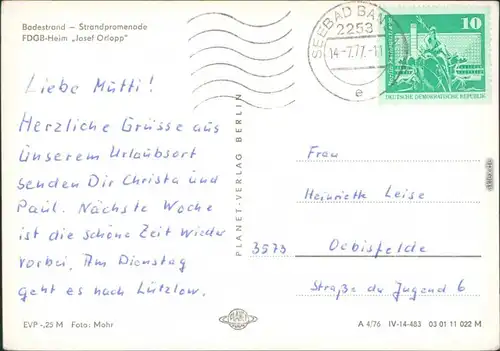 Badestrand — Strandpromenade
FDGB-Heim „Josef Orlopp"
Liebe Mutti!
Herzliche Grüsse aus
unserem Urlaubsort
senden Dir Christa und
Paul. Nächste Woche
ist die schöne Zeit wieder
vorbei. Am Dienstag
geht es nach Lützlow.
EVP -,25 M Foto: Mohr
PLANET-VERLAG BERLIN
SEEBAD BAN
2253
14-7.77.-11
e
10
DEUTSCHE DEMOKRATISCHE REPUBLIK
Frau
Heinriette Leise
3573 Oebisfelde
Straße der Jugend 6
A 4/76 IV-14-483 03 01 11 022 M